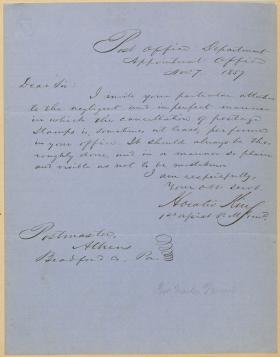 Post Office Department
Appointment Office
Nov 7 1857
Dear Sir:
I invite your particular attention
to the negligent and imperfect manner
in which the cancellation of postage
stamps is, sometimes at least, performed
in your office. It should always be tho-
roughly done and in a manner so plain
and visible as not to be mistaken
I am respectfully,
Your Obt Servt.
Horatio King
1st Asst P. M. Genl.
Postmaster,
Athens
Bradford Co. Pa.